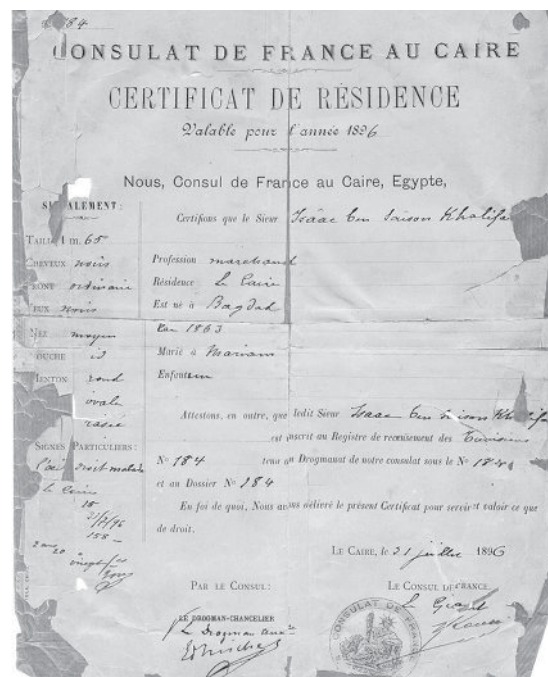 184
CONSULAT DE FRANCE AU CAIRE
CERTIFICAT DE RÉSIDENCE
Valable pour l'année 1896
Nous, Consul de France au Caire, Egypte,
SIGNALEMENT:
TAILLE 1 m. 65
CHEVEUX noirs
FRONT ordinaire
YEUX noirs
NEZ moyen
BOUCHE id
MENTON rond
ovale
rasé
SIGNES PARTICULIERS:
l'œil droit malade
Le Caire
21/7/96
158
Certifions que le Sieur Isaac ben Saison Khalifa
Profession marchand
Résidence Le Caire
Est né à Bagdad
En 1863
Marié à Mariam
Enfants
Attestons, en outre, que ledit Sieur Isaac ben Saison Khalifa
est inscrit au Registre de recensement des Tunisiens
No 184 tenu au Drogmanat de notre consulat sous le No 184
et au Dossier No 184
En foi de quoi, Nous avons délivré le présent Certificat pour servir et valoir ce que
de droit.
LE CAIRE, le 21 juillet 1896
PAR LE CONSUL:
LE DROGMAN-CHANCELIER
LE CONSUL DE FRANCE
CONSULAT DE FRANCE